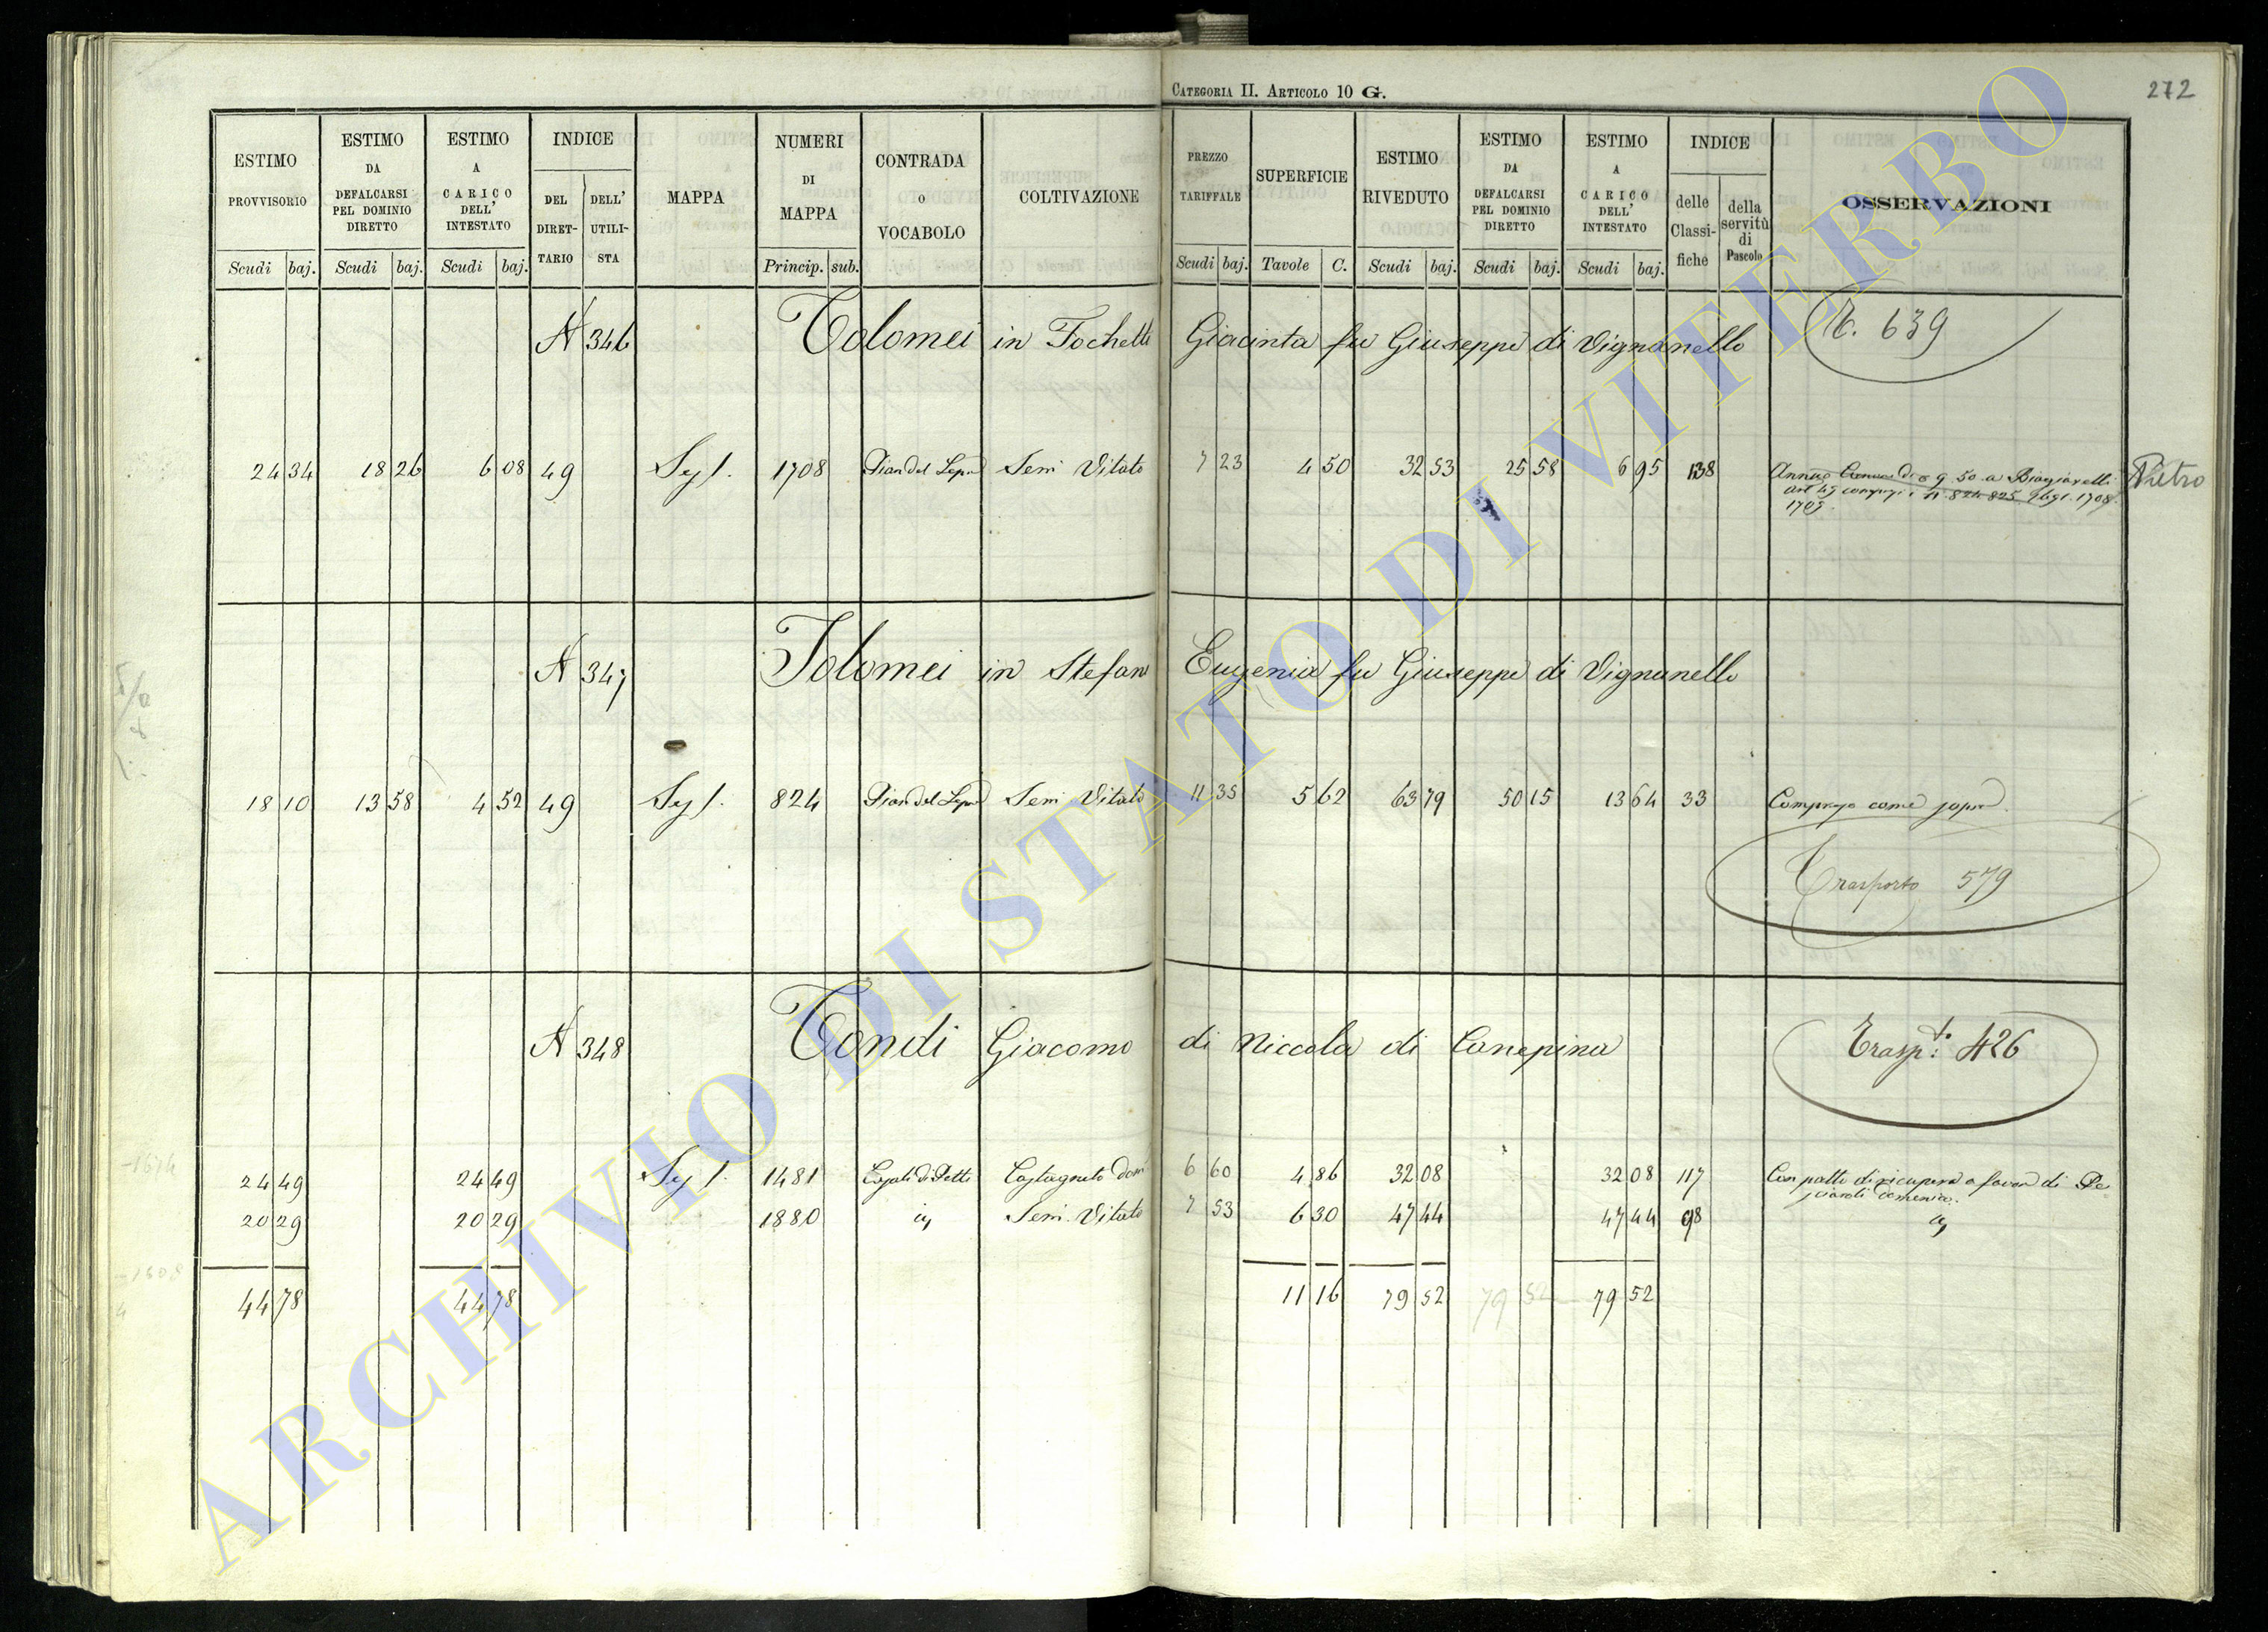 CATEGORIA II. ARTICOLO 10 G.
272
ESTIMO PROVVISORIO Scudi baj.
ESTIMO DA DEFALCARSI PEL DOMINIO DIRETTO Scudi baj.
ESTIMO A CARICO DELL' INTESTATO Scudi baj.
INDICE DEL DIRETTARIO DELL' UTILISTA
MAPPA
NUMERI DI MAPPA Princip. sub.
CONTRADA o VOCABOLO
COLTIVAZIONE
PREZZO TARIFFALE Scudi baj.
SUPERFICIE Tavole C.
ESTIMO RIVEDUTO Scudi baj.
ESTIMO DA DEFALCARSI PEL DOMINIO DIRETTO Scudi baj.
ESTIMO A CARICO DELL' INTESTATO Scudi baj.
INDICE delle Classifiche della servitù di Pascolo
OSSERVAZIONI
N 346 Tolomei in Fochetti Giacinta fu Giuseppe di Vignanello T. 639
24 34 18 26 6 08 49 1708 Pian del Semi Vitato 7 23 4 50 32 53 25 58 6 95 138 9 50 a Biagiarelli Pietro
Art 49 824 825 1708
1709
N 347 Tolomei in Stefani Eugenia fu Giuseppe di Vignanello
18 10 13 58 4 52 49 824 Pian del Semi Vitato 11 35 5 62 63 79 50 15 13 64 33 Compreso come sopra
Trasporto 579
N 348 Tondi Giacomo di Niccola di Canepina Trasp.to 426
24 49 24 49 1481 Castagneto 6 60 4 86 32 08 32 08 117 Con patto di ricupera a favor di
Domenico
20 29 20 29 1880 Semi Vitato 7 53 6 30 47 44 47 44 98
44 78 44 78 11 16 79 52 79 52 79 52
ARCHIVIO DI STATO DI VITERBO